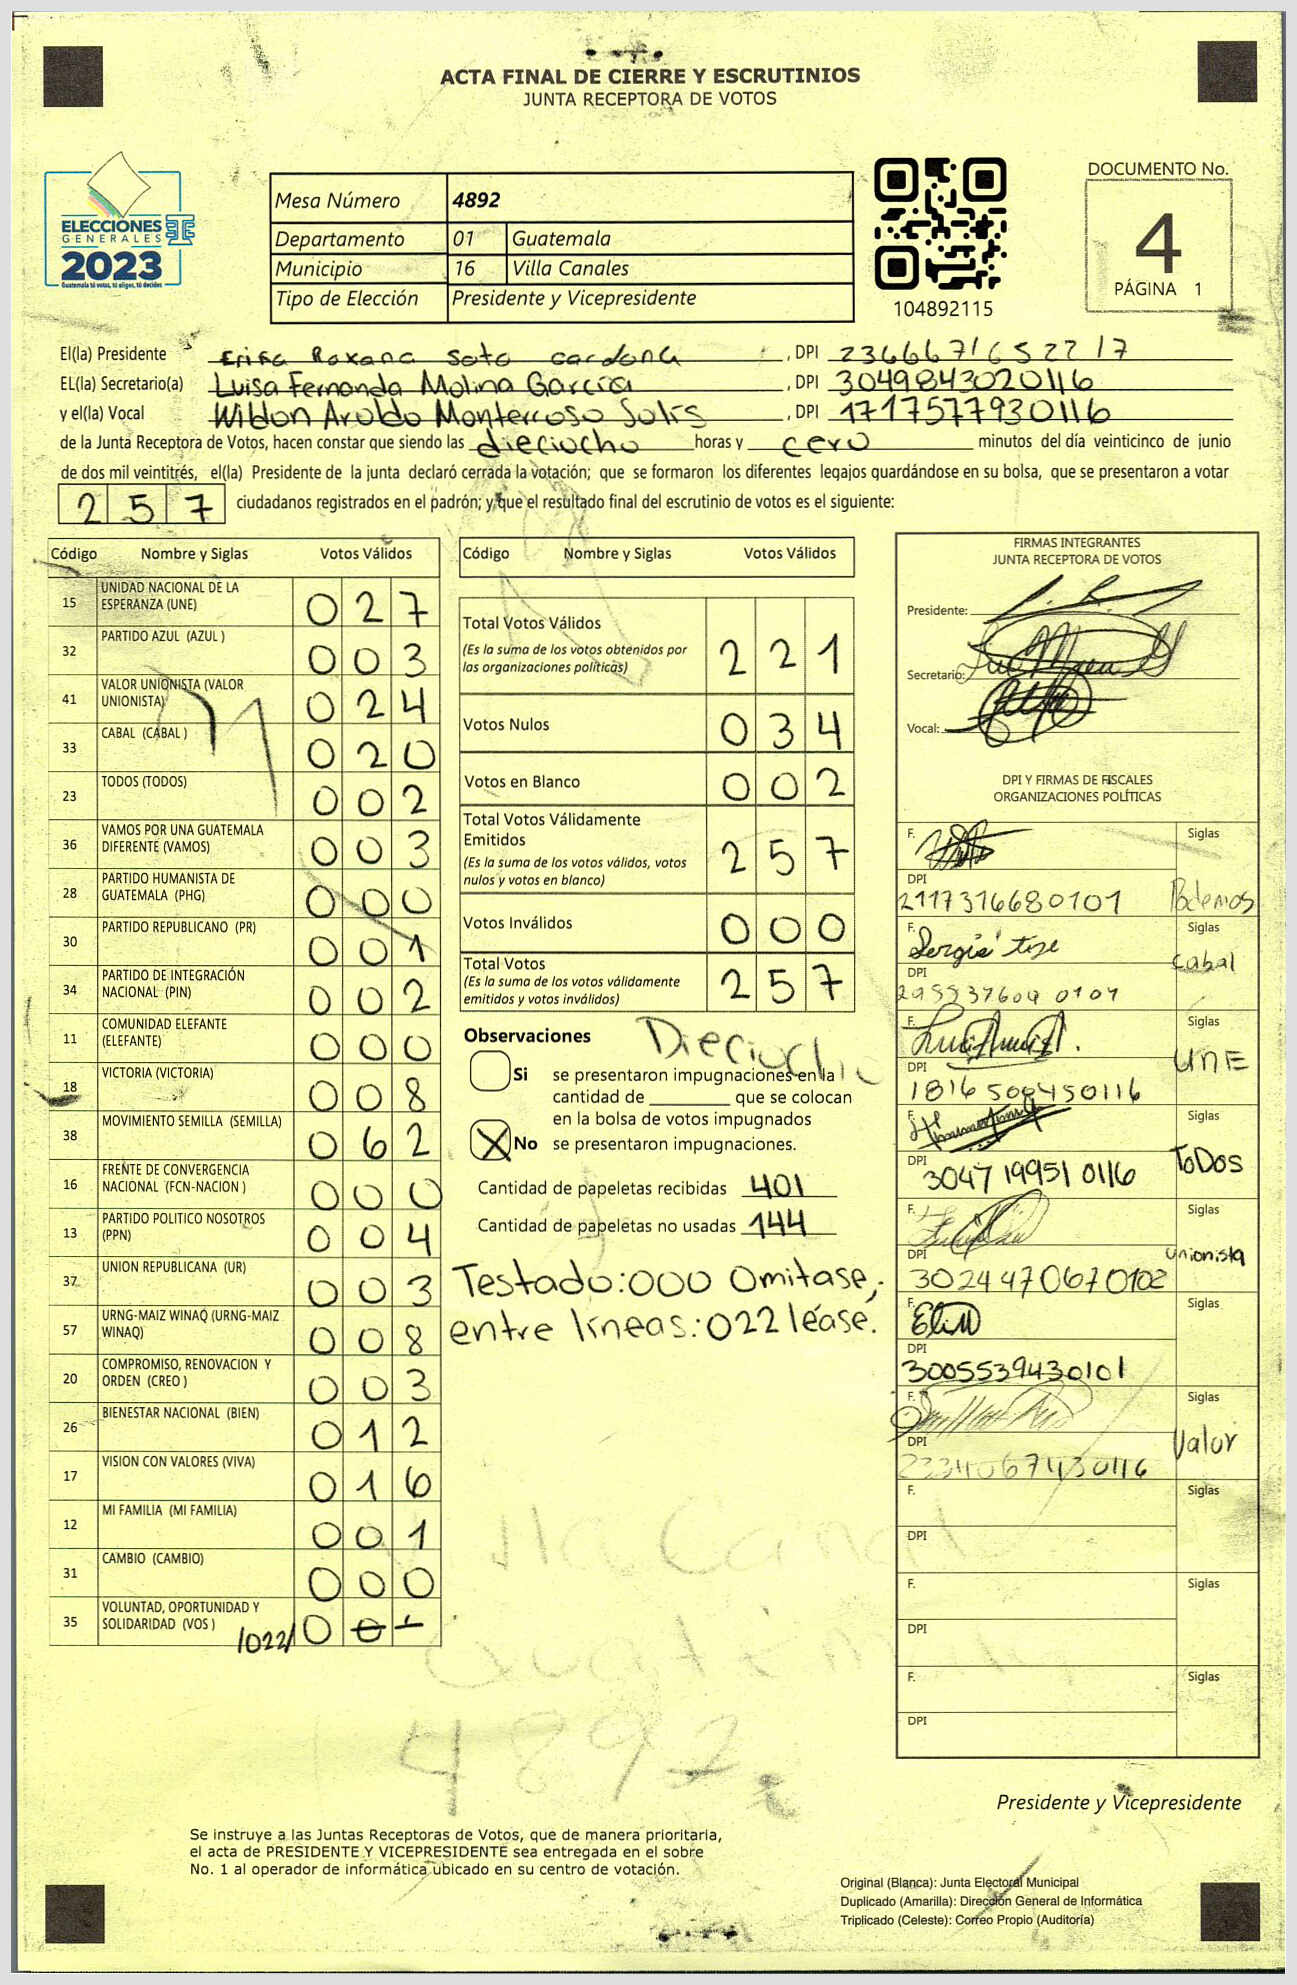 ACTA FINAL DE CIERRE Y ESCRUTINIOS
JUNTA RECEPTORA DE VOTOS
ELECCIONES
GENERALES
2023
Guatemala tú votas, tú eliges, tú decides
Mesa Número 4892
Departamento 01 Guatemala
Municipio 16 Villa Canales
Tipo de Elección Presidente y Vicepresidente
104892115
DOCUMENTO No.
4
PÁGINA 1
El(la) Presidente Erika Roxana Soto Cardona, DPI 2366671652217
EL(la) Secretario(a) Luisa Fernanda Molina García, DPI 3049843020116
y el(la) Vocal Wildon Aroldo Monterroso Solis, DPI 1717577930116
de la Junta Receptora de Votos, hacen constar que siendo las dieciocho horas y cero minutos del día veinticinco de junio
de dos mil veintitrés, el(la) Presidente de la junta declaró cerrada la votación; que se formaron los diferentes legajos quardándose en su bolsa, que se presentaron a votar
257 ciudadanos registrados en el padrón; y que el resultado final del escrutinio de votos es el siguiente:
Código Nombre y Siglas Votos Válidos
15 UNIDAD NACIONAL DE LA ESPERANZA (UNE) 027
32 PARTIDO AZUL (AZUL ) 003
41 VALOR UNIONISTA (VALOR UNIONISTA) 024
33 CABAL (CABAL ) 020
23 TODOS (TODOS) 002
36 VAMOS POR UNA GUATEMALA DIFERENTE (VAMOS) 003
28 PARTIDO HUMANISTA DE GUATEMALA (PHG) 000
30 PARTIDO REPUBLICANO (PR) 001
34 PARTIDO DE INTEGRACIÓN NACIONAL (PIN) 002
11 COMUNIDAD ELEFANTE (ELEFANTE) 000
18 VICTORIA (VICTORIA) 008
38 MOVIMIENTO SEMILLA (SEMILLA) 062
16 FRENTE DE CONVERGENCIA NACIONAL (FCN-NACION ) 000
13 PARTIDO POLITICO NOSOTROS (PPN) 004
37 UNION REPUBLICANA (UR) 003
57 URNG-MAIZ WINAQ (URNG-MAIZ WINAQ) 008
20 COMPROMISO, RENOVACION Y ORDEN (CREO ) 003
26 BIENESTAR NACIONAL (BIEN) 012
17 VISION CON VALORES (VIVA) 016
12 MI FAMILIA (MI FAMILIA) 001
31 CAMBIO (CAMBIO) 000
35 VOLUNTAD, OPORTUNIDAD Y SOLIDARIDAD (VOS ) /022/ 0
Código Nombre y Siglas Votos Válidos
Total Votos Válidos 221
(Es la suma de los votos obtenidos por
las organizaciones políticas)
Votos Nulos 034
Votos en Blanco 002
Total Votos Válidamente
Emitidos 257
(Es la suma de los votos válidos, votos
nulos y votos en blanco)
Votos Inválidos 000
Total Votos 257
(Es la suma de los votos válidamente
emitidos y votos inválidos)
Observaciones Dieciocho
Si se presentaron impugnaciones en la
cantidad de ________ que se colocan
en la bolsa de votos impugnados
X No se presentaron impugnaciones.
Cantidad de papeletas recibidas 401
Cantidad de papeletas no usadas 144
Testado:000 Omitase;
entre líneas:022 léase.
FIRMAS INTEGRANTES
JUNTA RECEPTORA DE VOTOS
Presidente:
Secretario:
Vocal:
DPI Y FIRMAS DE FISCALES
ORGANIZACIONES POLÍTICAS
F. Siglas
DPI
2117316680101 Podemos
F. Siglas
DPI cabal
F. Siglas
DPI UNE
1816500450116
F. Siglas
DPI TODOS
3047199510116
F. Siglas
DPI Unionista
3024470670102
F. Siglas
DPI
3005539430101
F. Siglas
DPI Valor
F. Siglas
DPI
F. Siglas
DPI
F. Siglas
DPI
Villa Canal
Guatemala
4892
Presidente y Vicepresidente
Se instruye a las Juntas Receptoras de Votos, que de manera prioritaria,
el acta de PRESIDENTE Y VICEPRESIDENTE sea entregada en el sobre
No. 1 al operador de informática ubicado en su centro de votación.
Original (Blanca): Junta Electoral Municipal
Duplicado (Amarilla): Dirección General de Informática
Triplicado (Celeste): Correo Propio (Auditoría)